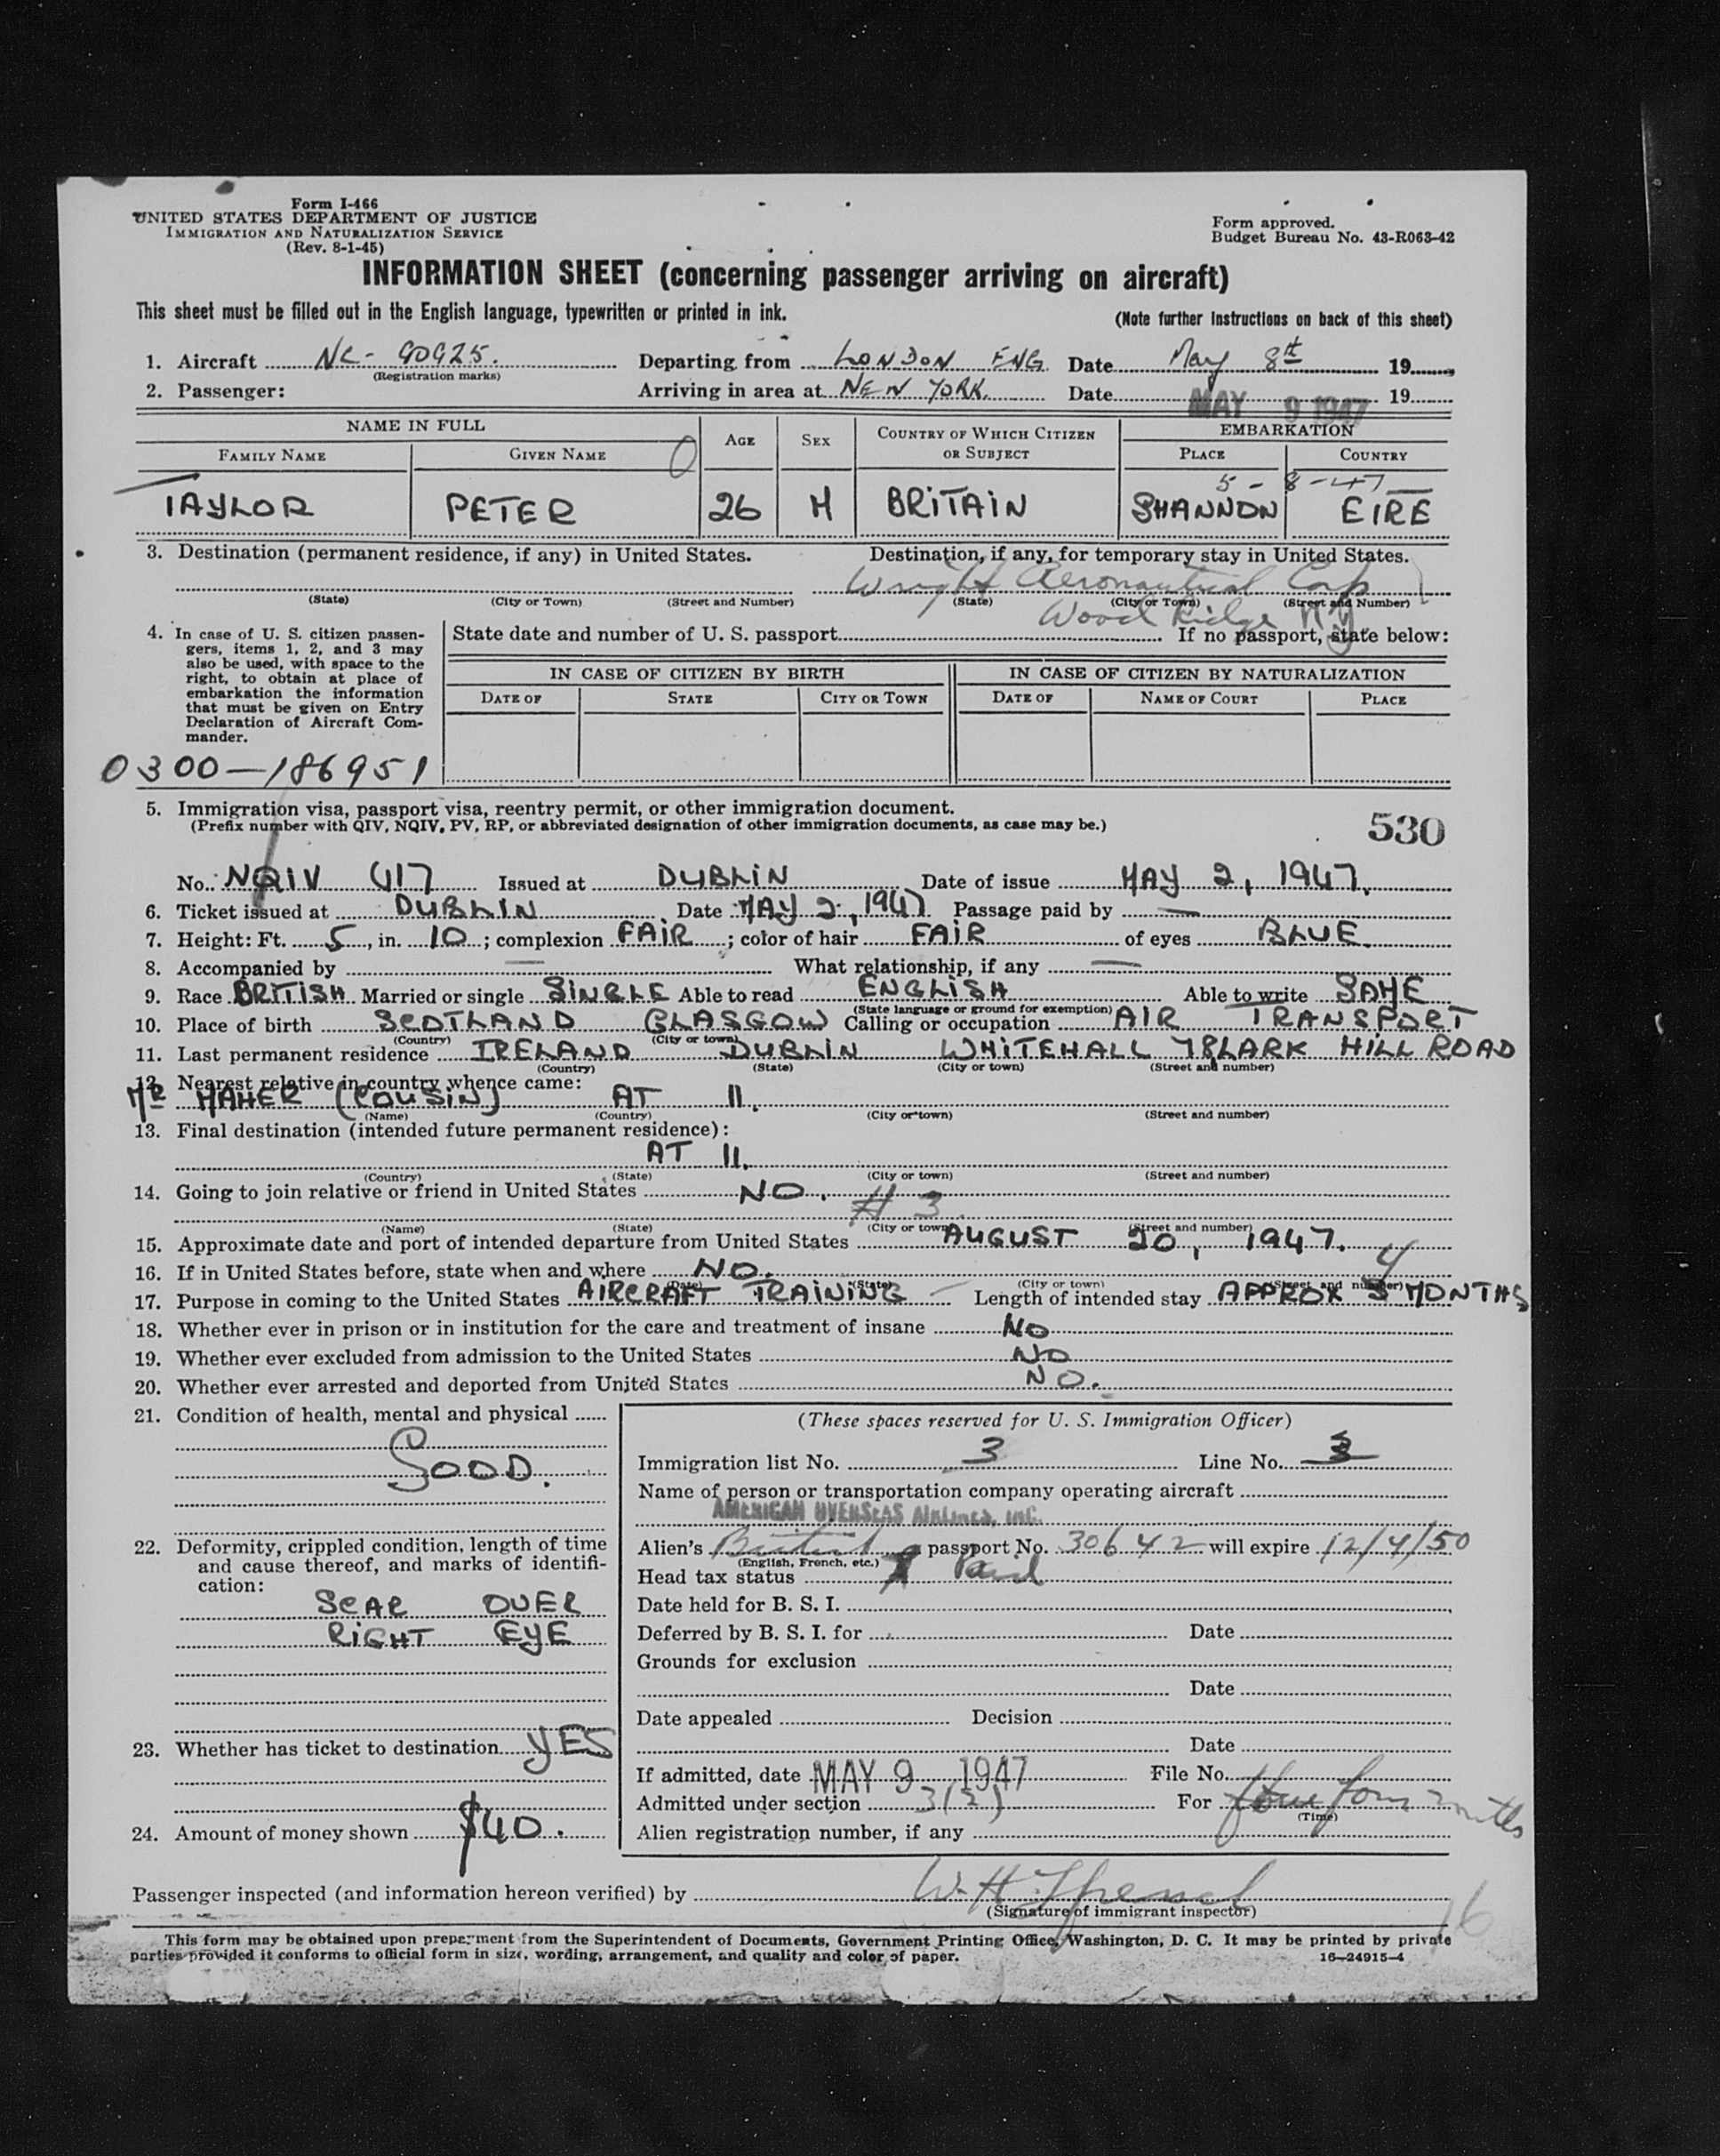 Form I-466
UNITED STATES DEPARTMENT OF JUSTICE
IMMIGRATION AND NATURALIZATION SERVICE
(Rev. 8-1-45)
Form approved.
Budget Bureau No. 43-R063-42
INFORMATION SHEET (concerning passenger arriving on aircraft)
This sheet must be filled out in the English language, typewritten or printed in ink.
(Note further instructions on back of this sheet)
1. Aircraft NC- 90925. Departing from LONDON ENG Date May 8th 19
(Registration marks)
2. Passenger: Arriving in area at NEW YORK. Date MAY 9 1947 19
NAME IN FULL AGE SEX COUNTRY OF WHICH CITIZEN OR SUBJECT EMBARKATION
FAMILY NAME GIVEN NAME PLACE COUNTRY
5-8-47
TAYLOR PETER 26 M BRITAIN SHANNON EIRE
3. Destination (permanent residence, if any) in United States. Destination, if any, for temporary stay in United States.
Wright Aeronautical Corp
(State) (City or Town) (Street and Number) (State) (City or Town) (Street and Number)
Wood Ridge N.J.
4. In case of U. S. citizen passengers, items 1, 2, and 3 may also be used, with space to the right, to obtain at place of embarkation the information that must be given on Entry Declaration of Aircraft Commander.
State date and number of U. S. passport If no passport, state below:
IN CASE OF CITIZEN BY BIRTH IN CASE OF CITIZEN BY NATURALIZATION
DATE OF STATE CITY OR TOWN DATE OF NAME OF COURT PLACE
0300-186951
5. Immigration visa, passport visa, reentry permit, or other immigration document.
(Prefix number with QIV, NQIV, PV, RP, or abbreviated designation of other immigration documents, as case may be.)
530
No. NQIV 417 Issued at DUBLIN Date of issue MAY 2, 1947.
6. Ticket issued at DUBLIN Date MAY 2, 1947 Passage paid by —
7. Height: Ft. 5, in. 10; complexion FAIR; color of hair FAIR of eyes BLUE
8. Accompanied by — What relationship, if any —
9. Race BRITISH Married or single SINGLE Able to read ENGLISH Able to write SAME
(State language or ground for exemption)
10. Place of birth SCOTLAND GLASGOW Calling or occupation AIR TRANSPORT
(Country) (City or town)
11. Last permanent residence IRELAND DUBLIN WHITEHALL 78 LARK HILL ROAD
(Country) (State) (City or town) (Street and number)
12. Nearest relative in country whence came:
MR MAHER (COUSIN) AT 11.
(Name) (Country) (City or town) (Street and number)
13. Final destination (intended future permanent residence):
AT 11.
(Country) (State) (City or town) (Street and number)
14. Going to join relative or friend in United States NO. # 3
(Name) (State) (City or town) (Street and number)
15. Approximate date and port of intended departure from United States AUGUST 20, 1947.
16. If in United States before, state when and where NO.
(Date) (State) (City or town) (Street and number)
4
17. Purpose in coming to the United States AIRCRAFT TRAINING Length of intended stay APPROX 3 MONTHS
18. Whether ever in prison or in institution for the care and treatment of insane NO
19. Whether ever excluded from admission to the United States NO
20. Whether ever arrested and deported from United States NO.
21. Condition of health, mental and physical
GOOD.
22. Deformity, crippled condition, length of time and cause thereof, and marks of identification:
SCAR OVER
RIGHT EYE
23. Whether has ticket to destination YES
24. Amount of money shown $40.
(These spaces reserved for U. S. Immigration Officer)
Immigration list No. 3 Line No. 3
Name of person or transportation company operating aircraft
AMERICAN OVERSEAS Airlines, INC.
Alien's British passport No. 30642 will expire 12/4/50
(English, French, etc.)
Head tax status Paid
Date held for B. S. I.
Deferred by B. S. I. for Date
Grounds for exclusion
Date
Date appealed Decision
Date
If admitted, date MAY 9 1947 File No.
Admitted under section 3(2) For four months
(Time)
Alien registration number, if any
Passenger inspected (and information hereon verified) by
(Signature of immigrant inspector)
16
This form may be obtained upon prepayment from the Superintendent of Documents, Government Printing Office, Washington, D. C. It may be printed by private
parties provided it conforms to official form in size, wording, arrangement, and quality and color of paper.
16—24915-4